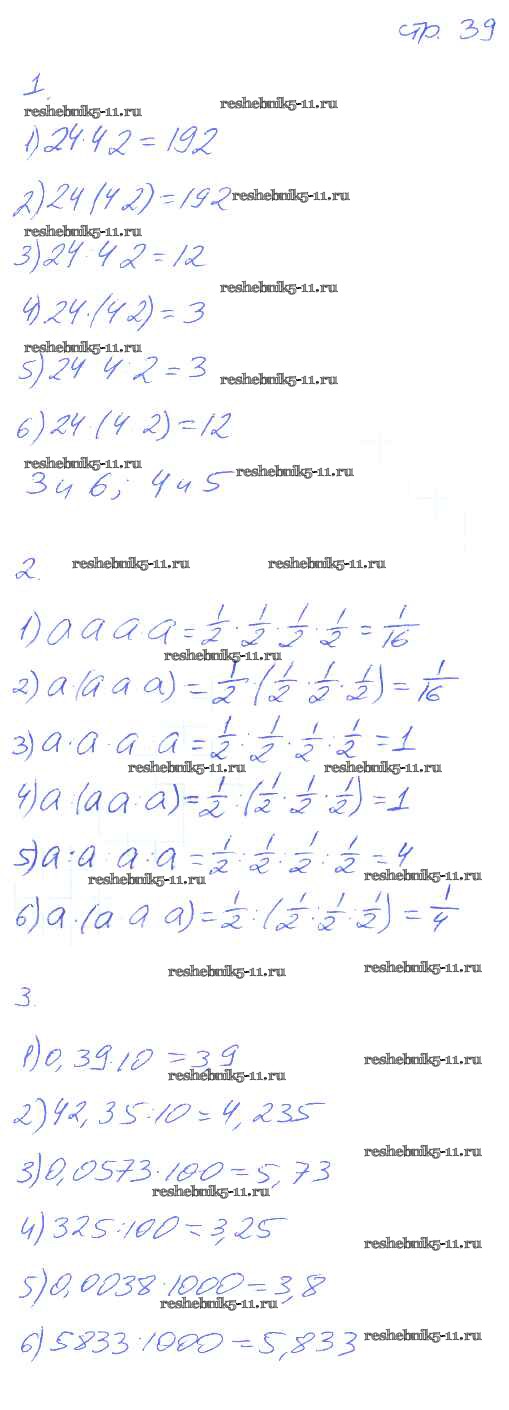 стр. 39
1.
reshebnik5-11.ru reshebnik5-11.ru
1) 24·4 2 = 192
2) 24 (4 2) = 192 reshebnik5-11.ru
reshebnik5-11.ru
3) 24 · 4 2 = 12
reshebnik5-11.ru
4) 24·(4 2) = 3
reshebnik5-11.ru
5) 24 4 2 = 3 reshebnik5-11.ru
6) 24·(4 2) = 12
reshebnik5-11.ru reshebnik5-11.ru
3 и 6; 4 и 5
2. reshebnik5-11.ru reshebnik5-11.ru
1) a a a·a = 1/2 · 1/2 · 1/2 · 1/2 = 1/16
reshebnik5-11.ru
2) a·(a a a) = 1/2 · (1/2 · 1/2 · 1/2) = 1/16
3) a·a·a a = 1/2 : 1/2 · 1/2 : 1/2 = 1
reshebnik5-11.ru reshebnik5-11.ru
4) a·(a a·a) = 1/2 : (1/2 · 1/2 : 1/2) = 1
5) a:a a:a = 1/2 : 1/2 : 1/2 : 1/2 = 4
reshebnik5-11.ru reshebnik5-11.ru
6) a·(a a a) = 1/2 : (1/2 : 1/2 : 1/2) = 1/4
reshebnik5-11.ru reshebnik5-11.ru
3.
1) 0,39·10 = 3,9 reshebnik5-11.ru
reshebnik5-11.ru
2) 42,35:10 = 4,235
reshebnik5-11.ru
3) 0,0573·100 = 5,73
reshebnik5-11.ru
4) 325:100 = 3,25
reshebnik5-11.ru
5) 0,0038·1000 = 3,8
reshebnik5-11.ru
6) 5833:1000 = 5,833 reshebnik5-11.ru